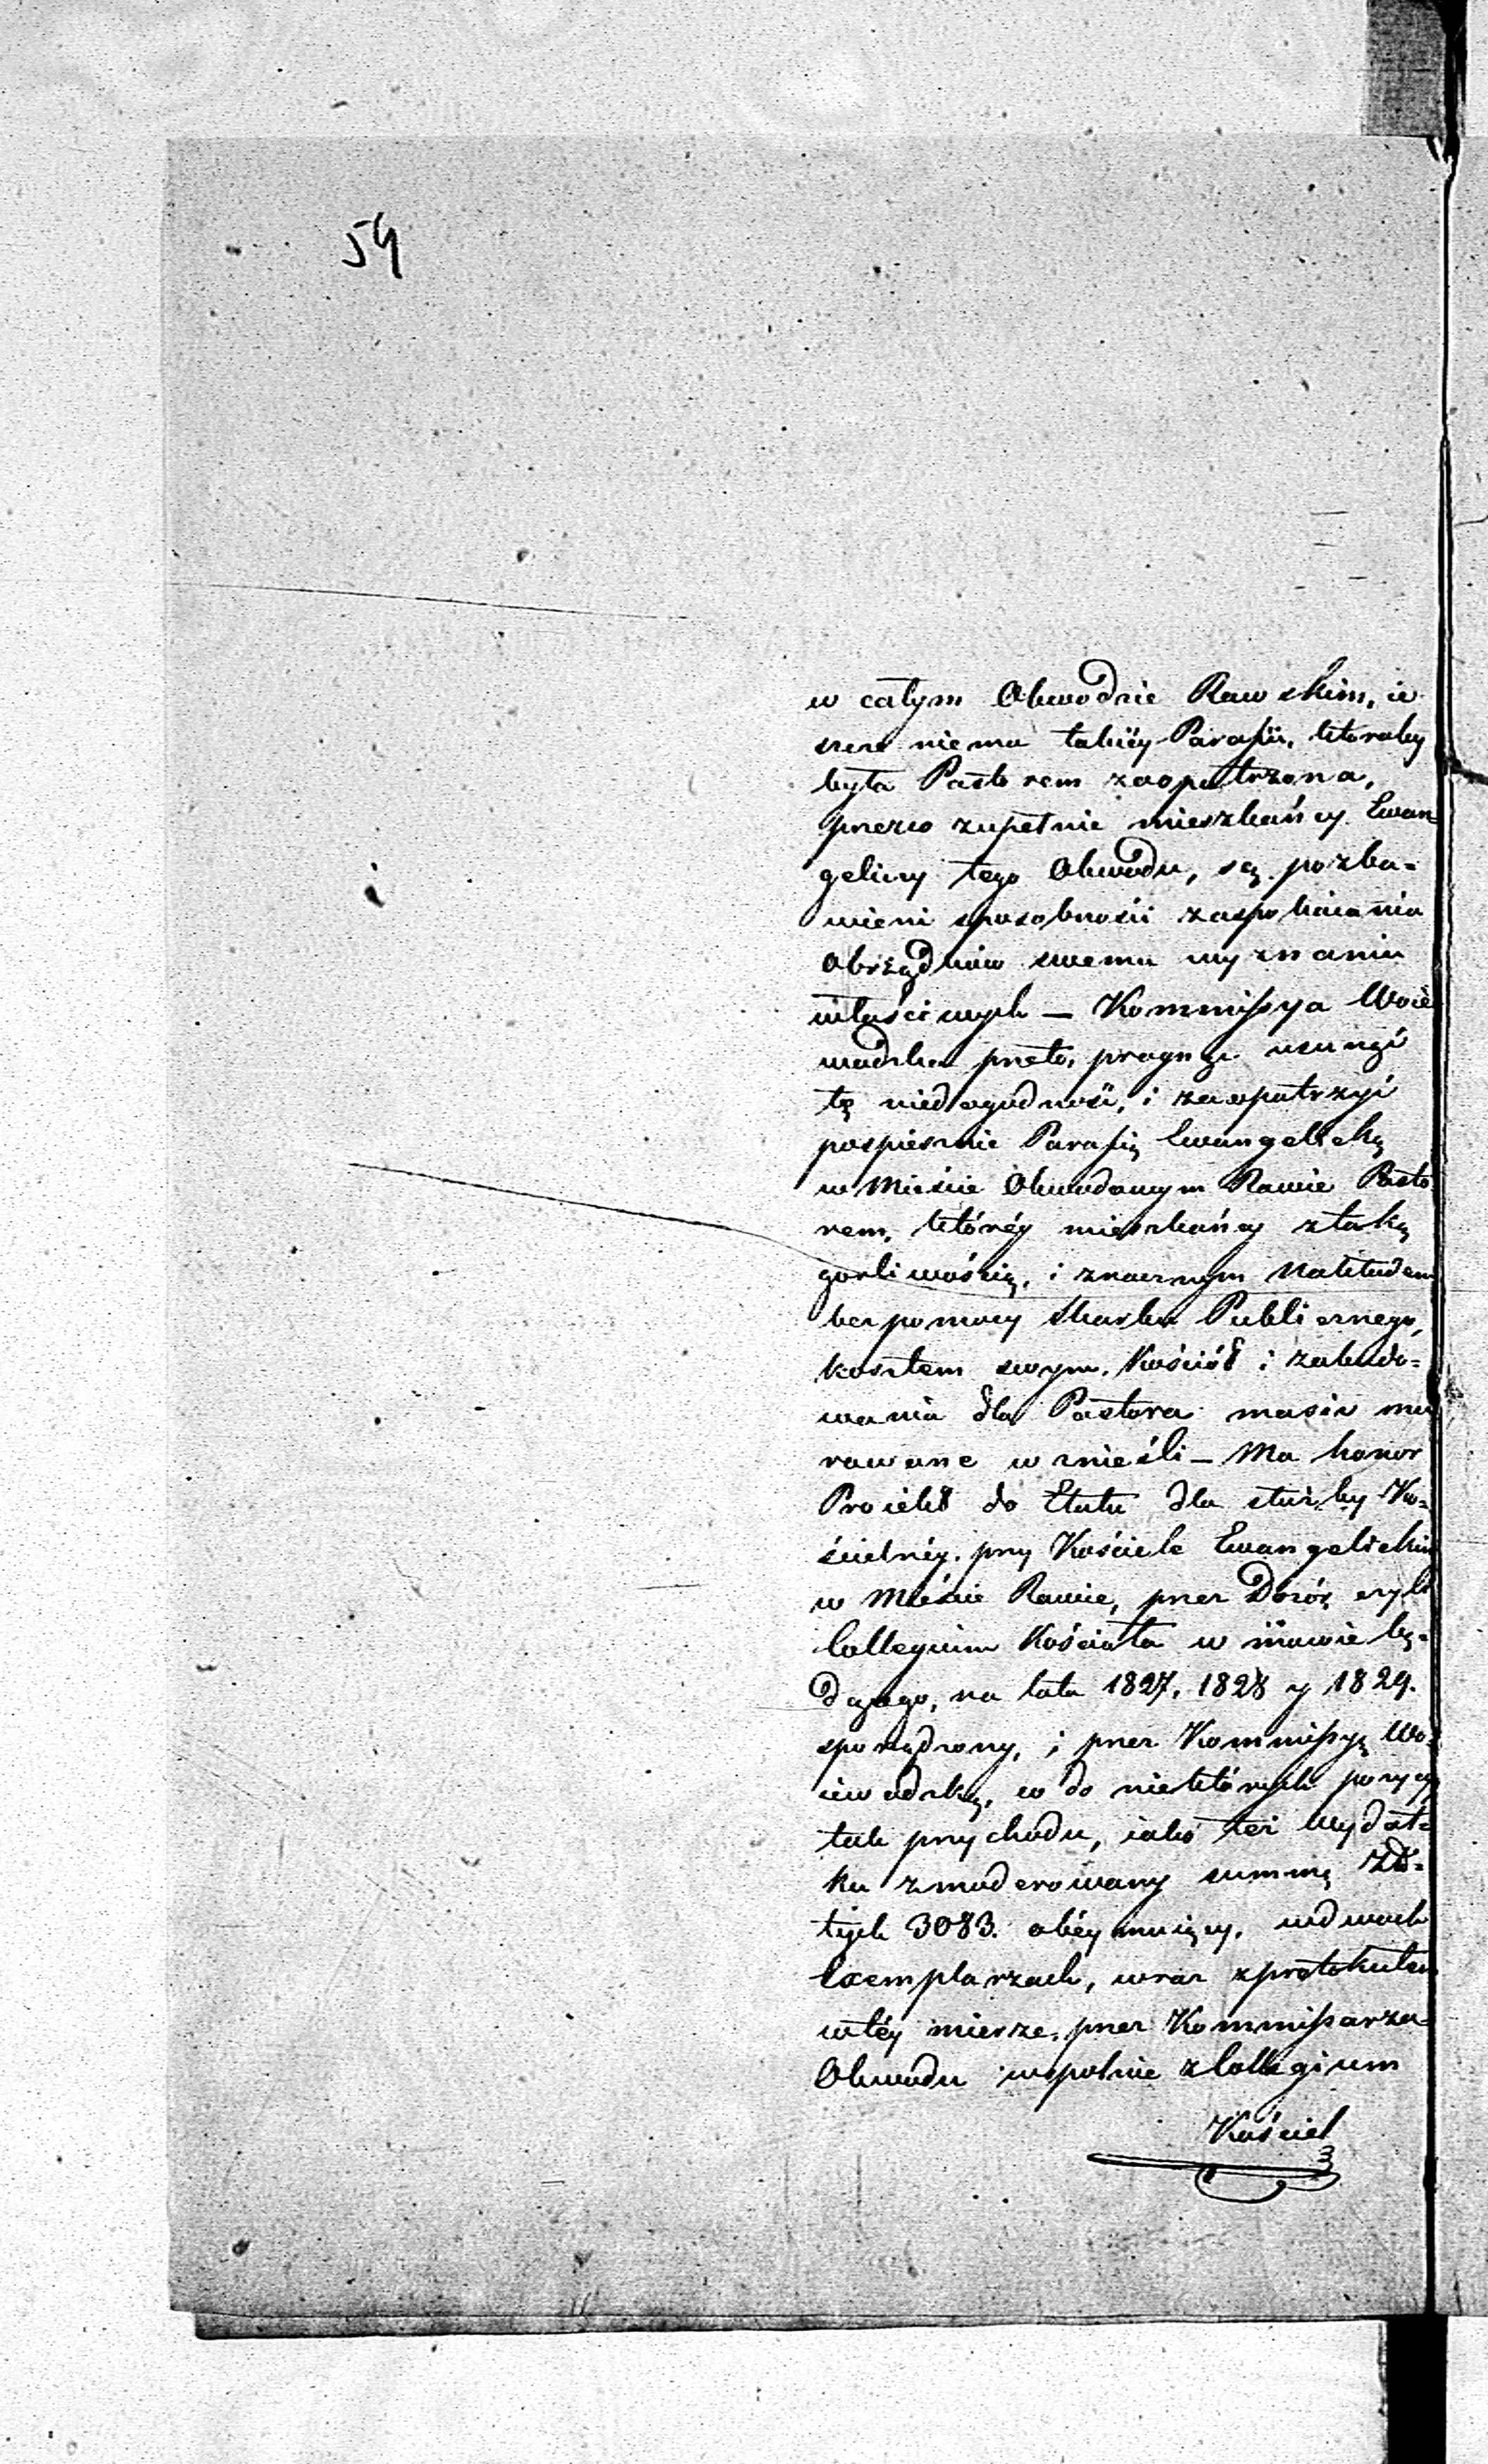 54
w całym Obwodzie Rawskim, ie
szcze niema takiéy Parafii, któraby
była Pastorem zaopatrzona,
przeco zupełnie mieszkańcy Ewan=
gelicy tego Obwodu, są pozba=
wieni sposobności zaspokaiania
Obrządków swemu wyznaniu
właściwych — Kommissya Woie
wodzka przeto, pragnąc usunąć
tę niedogodność, i zaopatrzyć
pospiesznie Parafią Ewangelicką
w Mieście Obwodowym Rawie Pasto
rem, któréy mieszkańcy z taką
gorliwością, i znacznym nakładem
bez pomocy Skarbu Publicznego,
kosztem swym, Kościół i zabudo=
wania dla Pastora masiv mu
rowane wznieśli — Ma honor
Proiekt do Etatu dla służby Ko=
ścielnéy, przy Kościele Ewangelickim
w Mieście Rawie, przez Dozór czyli
Collegium Kościoła w mowie bę=
dącego, na lata 1827, 1828 y 1829.
sporządzony, i przez Kommissyą Wo=
iewodzką, co do niektórych pozycyi
tak przychodu, iako też wydat=
ku zmoderowany summę Zło=
tych 3083. obéymuiący, w dwóch
Exemplarzach, wraz z protokułem
w téy mierze, przez Kommissarza
Obwodu wspólnie z Collegium
Kościel